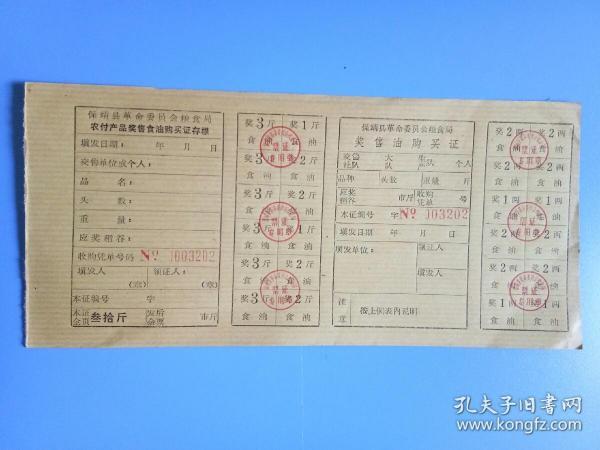 保靖县革命委员会粮食局
农付产品奖售食油购买证存根
填发日期: 年 月 日
交售单位或个人:
品名:
头数:
重量:
应奖稻谷:
收购凭单号码 № 1003202
填发人 领证人:
(章) (章)
本证编号 字
本证全页 叁拾斤 市斤
奖3斤 奖1斤
食油 食油
奖3斤 奖2斤
食油 食油
奖3斤 奖2斤
食油 食油
奖3斤 奖2斤
食油 食油
奖3斤 奖2斤
食油 食油
票证
专用章
保靖县革命委员会粮食局
奖售油购买证
交售社队 大队 生产队 个人
品种 头数 重量 斤
应奖稻谷 市斤 收购凭单 号
本证编号 字 № 003202
填发日期 年 月 日
填发单位: 领证人:
填发人:
注意 按上例表内记明
奖2两 奖2两
食油 食油
奖2两
食油 食油
奖1两 奖1两
食油 食油
奖2两 奖2两
食油 食油
奖2两 奖2两
食油 食油
奖1两 奖1两
食油 食油
票证
专用章
孔夫子旧书网